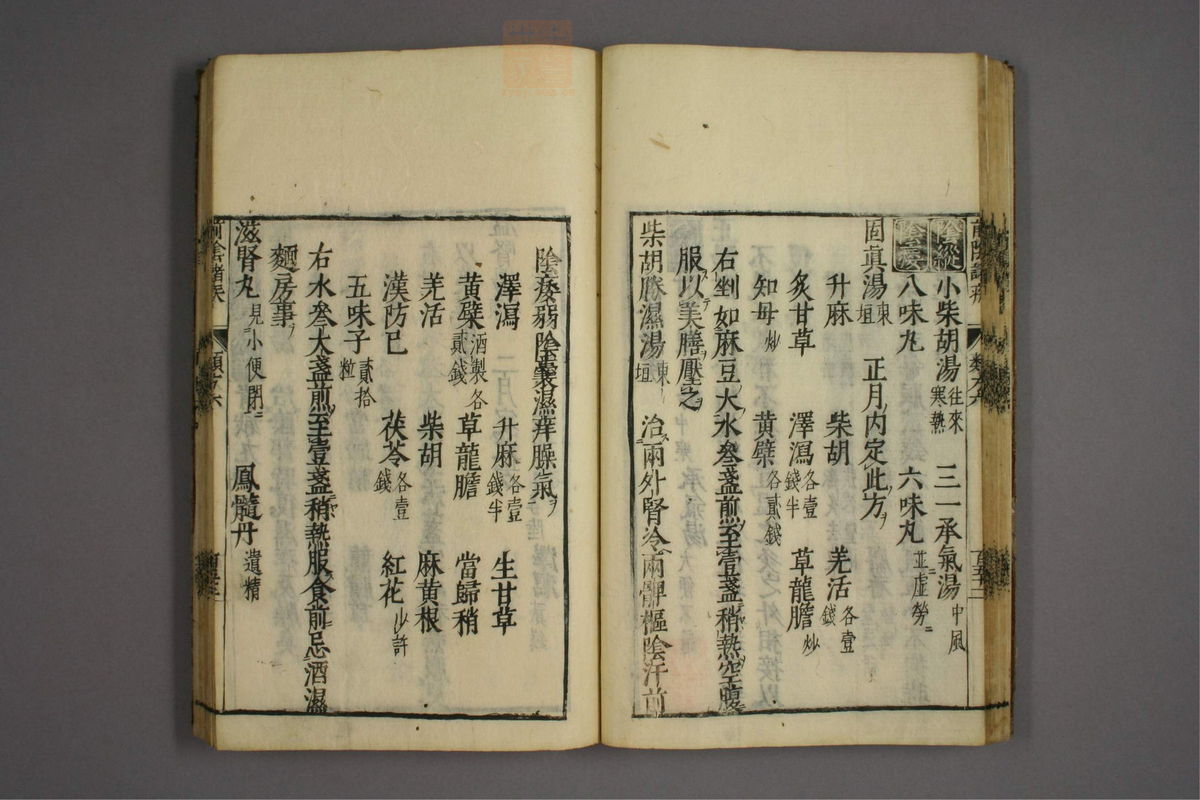 陰縱 小柴胡湯 往來寒熱 三一承氣湯 中風
陰痿 八味丸 六味丸 並虛勞ニ
固眞湯 東垣 正月内定此方ヲ
升麻 柴胡 羌活 各壹錢
炙甘草 澤瀉 各壹錢半 草龍膽 炒
知母 炒 黄檗 各貳錢
右剉如麻豆大水叄盞煎至壹盞稍熱空腹
服以美膳壓之
柴胡勝濕湯 東垣 治兩外腎冷兩髀樞陰汗前
陰痿弱陰囊濕痒臊氣ヲ
澤瀉 升麻 各壹錢半 生甘草
黄檗 酒製各貳錢 草龍膽 當歸稍
羌活 柴胡 麻黄根
漢防已 茯苓 各壹錢 紅花 少許
五味子 貳拾粒
右水叄大盞煎至壹盞稍熱服食前忌酒濕
麵房事ヲ
滋腎丸 見小便閉ニ 鳳髓丹 遺精